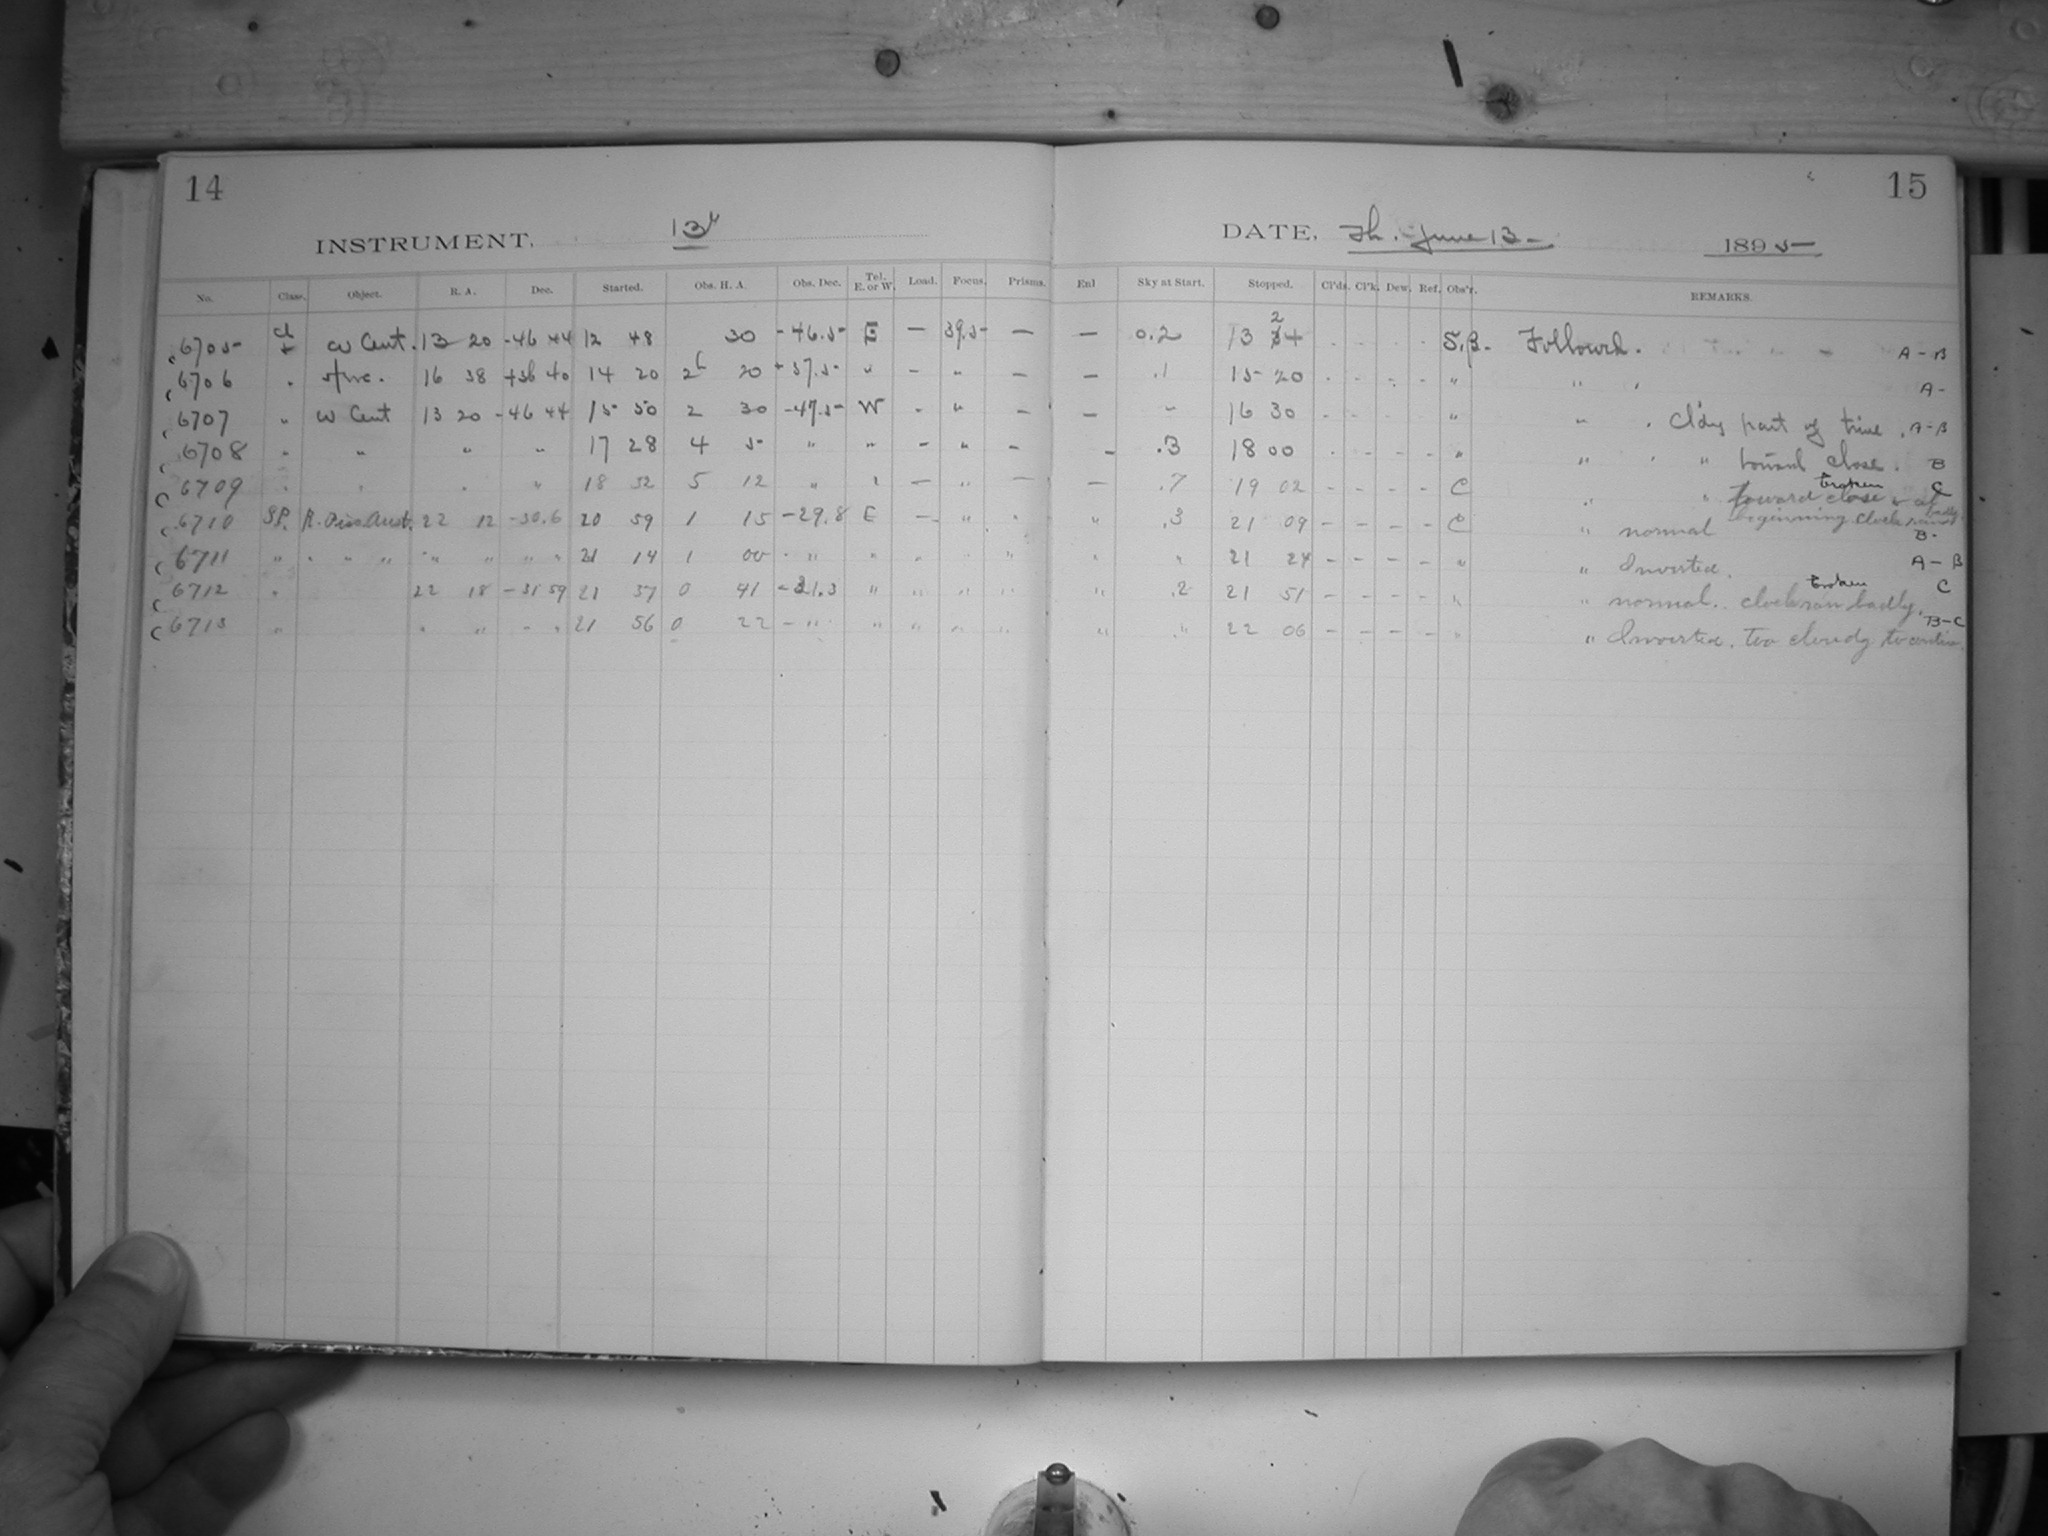 14
15
INSTRUMENT. 13"
DATE, Th. June 13 - 1895
No. Class. Object. R. A. Dec. Started. Obs. H. A. Obs. Dec. Tel. E. or W. Load. Focus. Prisms. Enl Sky at Start. Stopped. Cl'ds. Cl'k. Dew. Ref. Obs'r. REMARKS.
6705 Cl ω Cent. 13 20 -46 44 12 48 30 -46.5 E — 39.5 — — 0.2 13 24 S.B. Followed. A-B
6706 " 16 38 +36 40 14 20 2h 20 +37.5 " - " — — .1 15 20 - - - - " " A-
6707 " ω Cent 13 20 -46 44 15 50 2 30 -47.5 W - " — — " 16 30 - - - - " " Cl'dy part of time. A-B
6708 " " " " 17 28 4 5 " " - " - - .3 18 00 - - - - " " " toward close. B
6709 " " " " 18 52 5 12 " " — " — — .7 19 02 - - - - C " " toward close & at broken C
beginning clock ran badly
6710 SP. R. Pisc. Aust. 22 12 -30.6 20 59 1 15 -29.8 E - " " " .3 21 09 - - - - C " normal B-
6711 " " " " " " " " 21 14 1 00 - " " " " " " " 21 24 - - - - " " Inverted. A-B
6712 " 22 18 -31 59 21 37 0 41 -31.3 " " " " " .2 21 51 - - - - " " normal. clock ran badly. broken C
6713 " " " - " 21 56 0 22 - " " " " " " " 22 06 - - - - " " Inverted. too cloudy to B-C